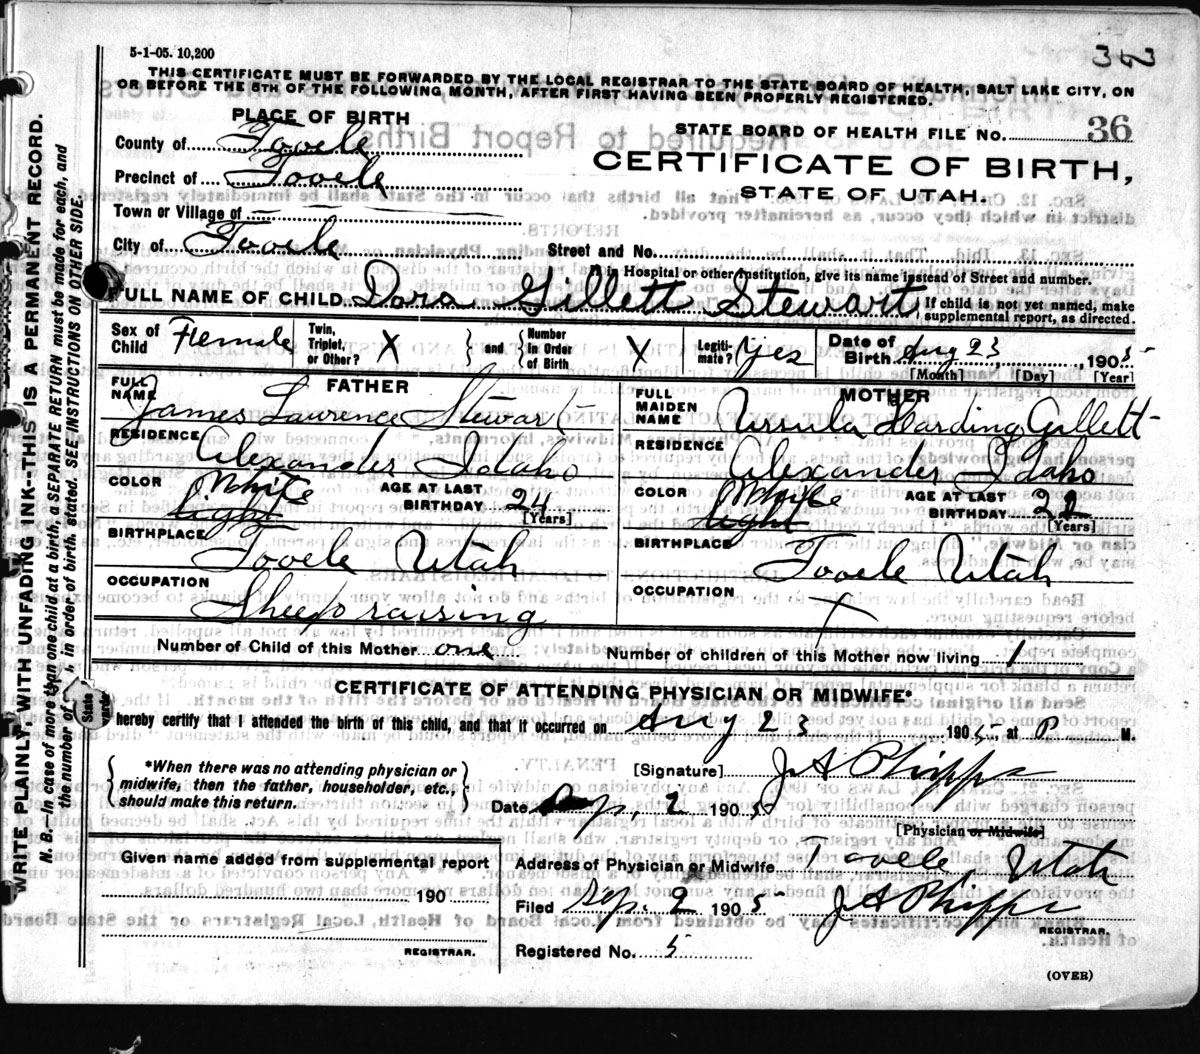 5-1-05. 10,200
323
THIS CERTIFICATE MUST BE FORWARDED BY THE LOCAL REGISTRAR TO THE STATE BOARD OF HEALTH, SALT LAKE CITY, ON
OR BEFORE THE 5TH OF THE FOLLOWING MONTH, AFTER FIRST HAVING BEEN PROPERLY REGISTERED.
PLACE OF BIRTH
County of Tooele
Precinct of Tooele
Town or Village of
City of Tooele
STATE BOARD OF HEALTH FILE No. 36
CERTIFICATE OF BIRTH,
STATE OF UTAH.
Street and No.
Hospital or other Institution, give its name instead of Street and number.
FULL NAME OF CHILD Dora Gillett Stewart
If child is not yet named, make
supplemental report, as directed.
Sex of Child Female
Twin, Triplet, or Other? X
and
Number In Order of Birth X
Legiti-mate? Yes
Date of Birth Aug 23, 1905
[Month] [Day] [Year]
FATHER
FULL NAME James Lawrence Stewart
RESIDENCE Alexander Idaho
COLOR White light
AGE AT LAST BIRTHDAY 24
[Years]
BIRTHPLACE Tooele Utah
OCCUPATION Sheep raising
MOTHER
FULL MAIDEN NAME Ursula Harding Gillett
RESIDENCE Alexander Idaho
COLOR White light
AGE AT LAST BIRTHDAY
[Years]
BIRTHPLACE Tooele Utah
OCCUPATION X
Number of Child of this Mother one
Number of children of this Mother now living 1
CERTIFICATE OF ATTENDING PHYSICIAN OR MIDWIFE*
I hereby certify that I attended the birth of this child, and that it occurred on Aug 23 1905 at P M.
*When there was no attending physician or
midwife, then the father, householder, etc.,
should make this return.
[Signature] J A Phipps
Date Sep. 2 1905
[Physician or Midwife]
Given name added from supplemental report
190
REGISTRAR.
Address of Physician or Midwife Tooele Utah
Filed Sep. 2 1905 J A Phipps
REGISTRAR.
Registered No. 5
(OVER)
WRITE PLAINLY WITH UNFADING INK—THIS IS A PERMANENT RECORD.
N. B.—In case of more than one child at a birth, a SEPARATE RETURN must be made for each, and
the number of in order of birth, stated. SEE INSTRUCTIONS ON OTHER SIDE.